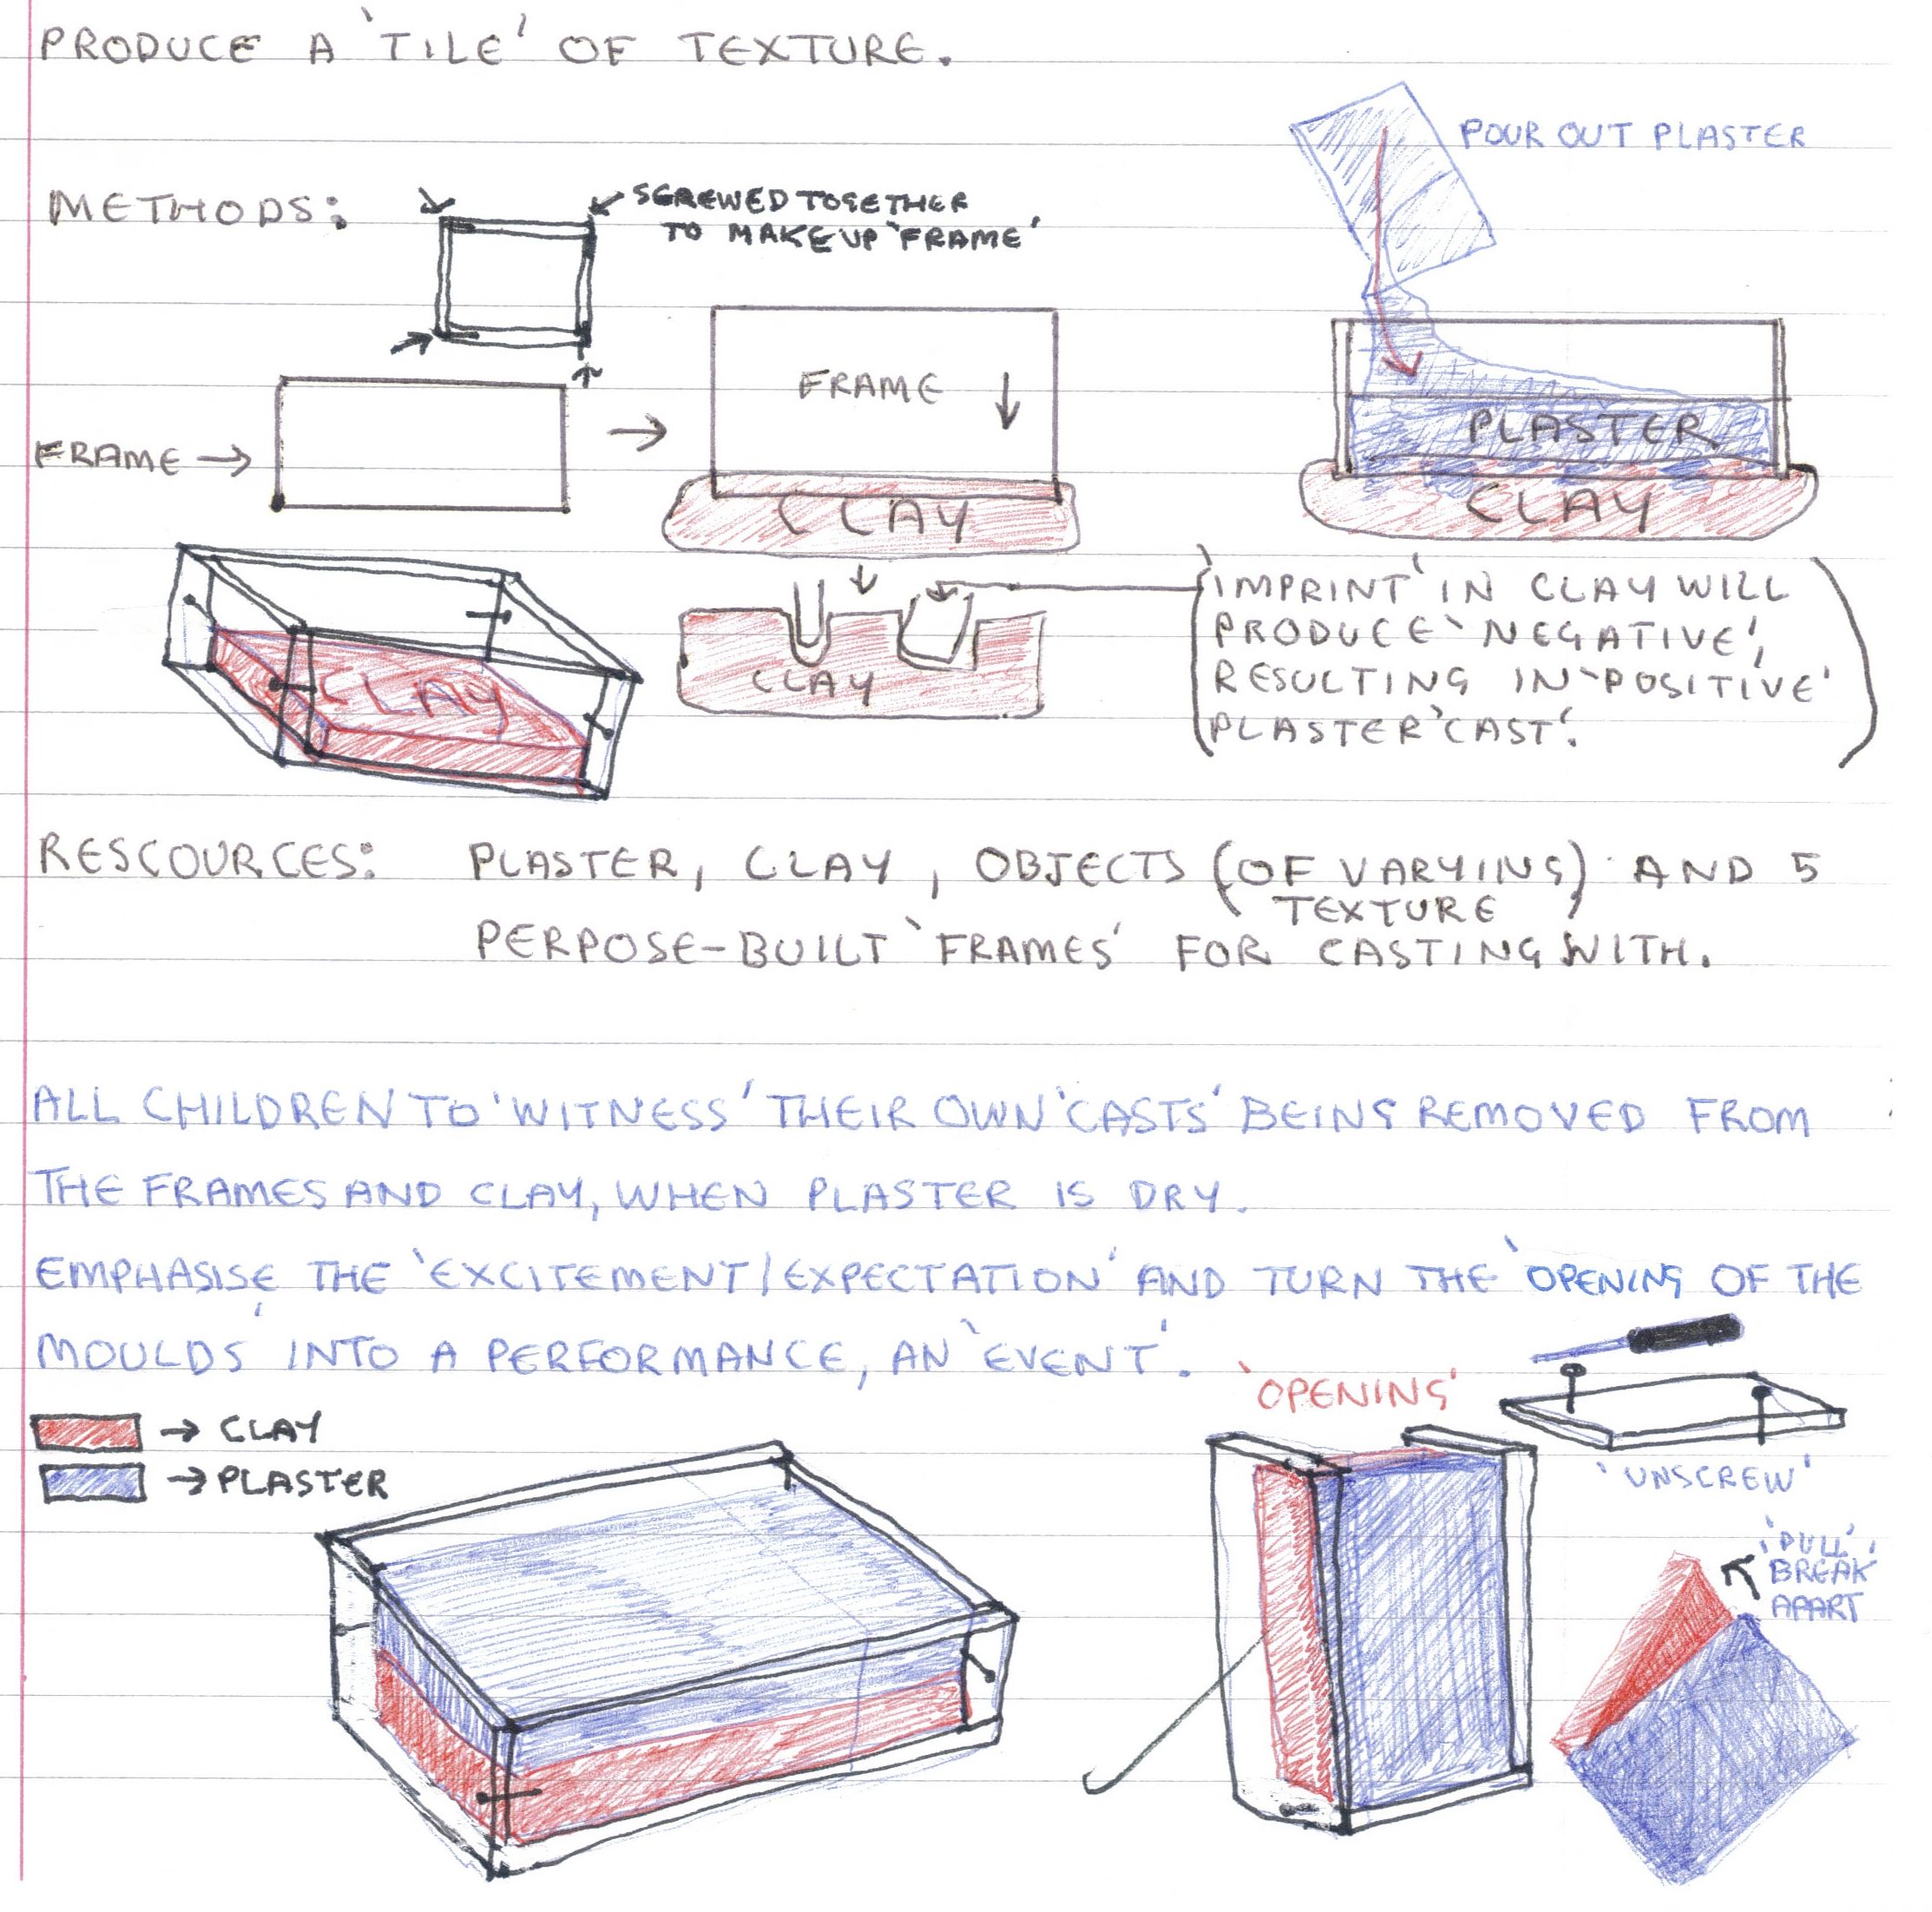 PRODUCE A 'TILE' OF TEXTURE.
POUR OUT PLASTER
METHODS:
SCREWED TOGETHER
TO MAKE UP 'FRAME'
FRAME
PLASTER
FRAME →
CLAY
CLAY
'IMPRINT' IN CLAY WILL
PRODUCE 'NEGATIVE',
RESULTING IN 'POSITIVE'
PLASTER 'CAST'.
CLAY
CLAY
RESCOURCES: PLASTER, CLAY, OBJECTS (OF VARYING) AND 5
TEXTURE
PERPOSE-BUILT 'FRAMES' FOR CASTING WITH.
ALL CHILDREN TO 'WITNESS' THEIR OWN 'CASTS' BEING REMOVED FROM
THE FRAMES AND CLAY, WHEN PLASTER IS DRY.
EMPHASISE THE 'EXCITEMENT/EXPECTATION' AND TURN THE 'OPENING OF THE
MOULDS' INTO A PERFORMANCE, AN 'EVENT'.
'OPENING'
→ CLAY
→ PLASTER
'UNSCREW'
'PULL'
BREAK
APART